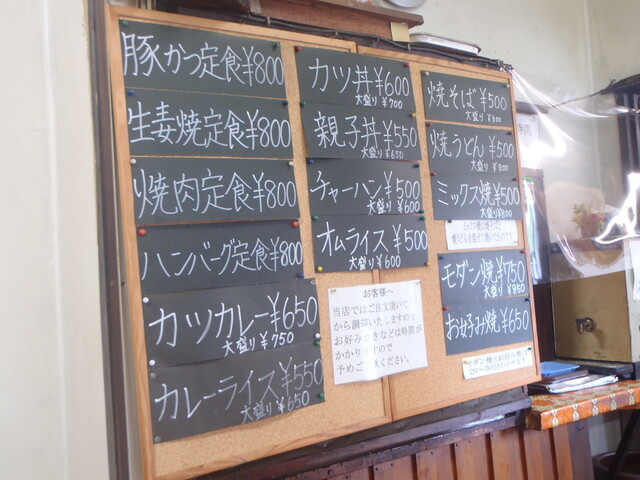 豚かつ定食¥800
生姜焼定食¥800
焼肉定食¥800
ハンバーグ定食¥800
カツカレー¥650
大盛り¥750
カレーライス¥550
大盛り¥650
カツ丼¥600
大盛り¥700
親子丼¥550
大盛り¥650
チャーハン¥500
大盛り¥600
オムライス¥500
大盛り¥600
お客様へ
当店ではご注文頂いて
から調理いたしますので
お好み焼きなどは時間が
かかりますので
予めご了承ください。
焼そば¥500
大盛り¥800
焼うどん¥500
大盛り¥800
ミックス焼¥500
大盛り¥800
ミックス焼は焼そばと
焼うどんを混ぜて焼いたものです
モダン焼¥750
大盛り¥950
お好み焼¥650
モダン焼とお好み焼は
20〜30分かかります